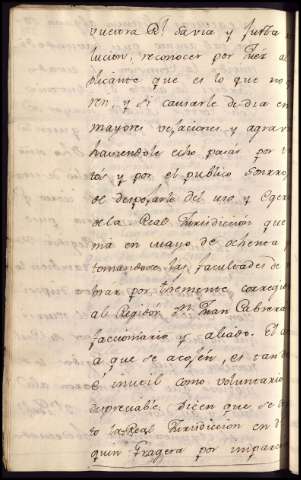 vuestra Rl. savia y justa
lucion, reconocer por Juéz al
plicante que es lo que no
ren, y si causarle de dia en
mayores vejaciones y agravi
haviendole echo pasar por
tós y por el publico sonrro
de despojarle del uso y Exer
de la Real Jurisdiccion que
ma en mayo de ochenta y
tomandose las facultades de
brar por theniente corregid
al Regidor Dn. Juan Cabrera
faccionario y aliado. El
a que se acojen, es tan
é inutil como voluntario
despreciable, dicen que se
to la Real Jurisdiccion en D
quin Fragera por imparci